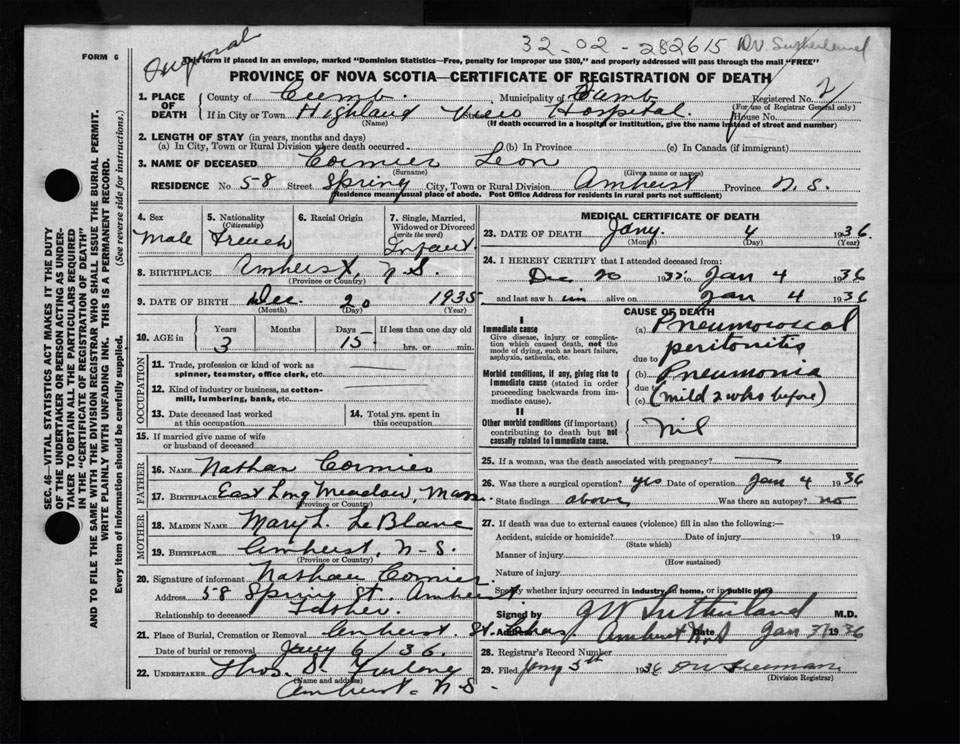 Original
32-02-282615
Dr. Sutherland
FORM 6
This form if placed in an envelope, marked "Dominion Statistics—Free, penalty for improper use $300," and properly addressed will pass through the mail "FREE"
PROVINCE OF NOVA SCOTIA—CERTIFICATE OF REGISTRATION OF DEATH
1. PLACE OF DEATH County of Cumb. Municipality of Cumb Registered No. 2
(For use of Registrar General only)
If in City or Town Highland View Hospital. House No.
(Name) (If death occurred in a hospital or institution, give the name instead of street and number)
2. LENGTH OF STAY (in years, months and days)
(a) In City, Town or Rural Division where death occurred (b) In Province (c) In Canada (if immigrant)
3. NAME OF DECEASED Cormier Leon
(Surname) (Given name or names)
RESIDENCE No. 58 Street Spring City, Town or Rural Division Amherst Province N. S.
(Residence means usual place of abode. Post Office Address for residents in rural parts not sufficient)
4. Sex Male
5. Nationality (Citizenship) French
6. Racial Origin
7. Single, Married, Widowed or Divorced (write the word) Infant
8. BIRTHPLACE Amherst, N S.
(Province or Country)
9. DATE OF BIRTH Dec. 20 1935
(Month) (Day) (Year)
10. AGE in Years Months Days If less than one day old
3 15 hrs. or min.
OCCUPATION
11. Trade, profession or kind of work as spinner, teamster, office clerk, etc.
12. Kind of industry or business, as cotton-mill, lumbering, bank, etc.
13. Date deceased last worked at this occupation
14. Total yrs. spent in this occupation
15. If married give name of wife or husband of deceased
FATHER
16. NAME Nathan Cormier
17. BIRTHPLACE East Long Meadow, Mass.
(Province or Country)
MOTHER
18. MAIDEN NAME Mary L. Le Blanc
19. BIRTHPLACE Amherst, N-S.
(Province or Country)
20. Signature of informant Nathan Cormier.
Address 58 Spring St. Amherst
Relationship to deceased Father.
21. Place of Burial, Cremation or Removal Amherst. St. Chas.
Date of burial or removal Jany 6/36.
22. UNDERTAKER Thos. D. Furlong
(Name and address)
Amherst. N S.
MEDICAL CERTIFICATE OF DEATH
23. DATE OF DEATH Jany. 4 1936.
(Month) (Day) (Year)
24. I HEREBY CERTIFY that I attended deceased from:
Dec 20 19 to Jan 4 1936
and last saw him alive on Jan 4 1936
CAUSE OF DEATH
I
Immediate cause
Give disease, injury or complication which caused death, not the mode of dying, such as heart failure, asphyxia, asthenia, etc.
(a) Pneumococcal
due to peritonitis
Morbid conditions, if any, giving rise to immediate cause (stated in order proceeding backwards from immediate cause).
(b) Pneumonia
due to
(c) (mild 2 wks before)
II
Other morbid conditions (if important) contributing to death but not causally related to immediate cause.
Nil
25. If a woman, was the death associated with pregnancy?
26. Was there a surgical operation? yes Date of operation Jan 4 1936
State findings above Was there an autopsy? no
27. If death was due to external causes (violence) fill in also the following:—
Accident, suicide or homicide? Date of injury 19
(State which)
Manner of injury
(How sustained)
Nature of injury
Specify whether injury occurred in industry, in home, or in public place
Signed by J W Sutherland M.D.
Address Amherst N.S Date Jan 1936
28. Registrar's Record Number
29. Filed Jany 5th 1936
(Division Registrar)
SEC. 46—VITAL STATISTICS ACT MAKES IT THE DUTY
OF THE UNDERTAKER OR PERSON ACTING AS UNDER-
TAKER TO OBTAIN ALL THE PARTICULARS REQUIRED
IN THE "CERTIFICATE OF REGISTRATION OF DEATH"
AND TO FILE THE SAME WITH THE DIVISION REGISTRAR WHO SHALL ISSUE THE BURIAL PERMIT.
WRITE PLAINLY WITH UNFADING INK. THIS IS A PERMANENT RECORD.
Every item of Information should be carefully supplied. (See reverse side for instructions.)